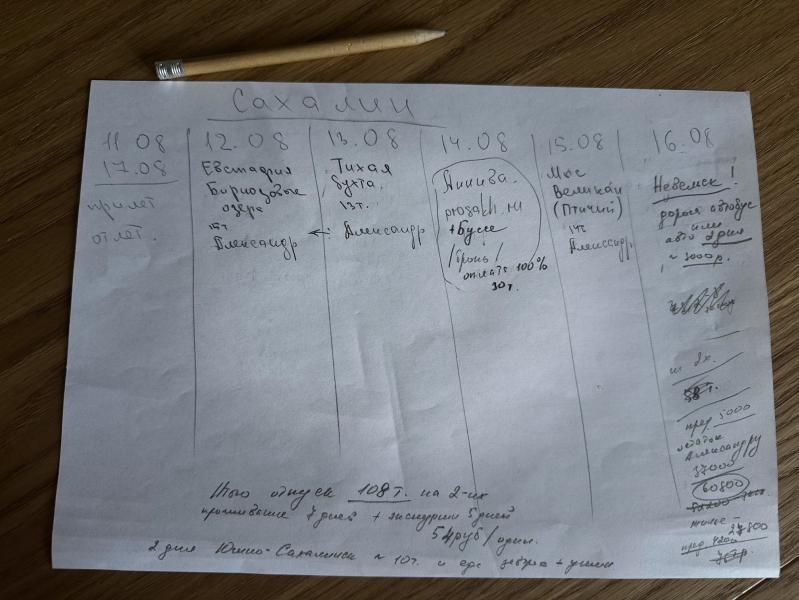 Сахалин
11 08
17.08
прилет
отлет.
12.08
Евстафия
Бирюзовые
озера
Александр
13.08
Тихая
бухта,
13т.
← Александр
14.08
Анива.
prosakh.ru
+ Буссе
/бронь/
оплата 100%
30т.
15.08
Мыс
Великан
(Птичий)
Александр
16.08
Невельск!
дорога автобус
или
авто 2 дня
~ 3000р.
на 2х.
58т.
пред. 5000
остаток
Александру
37000
60800
жилье –
27800
пред 4200
Итого отпуск 108т. на 2-их
проживание 7 дней + экскурсии 5 дней
54руб/один.
2 дня Южно-Сахалинск ~ 10т. и еда завтра + ужин